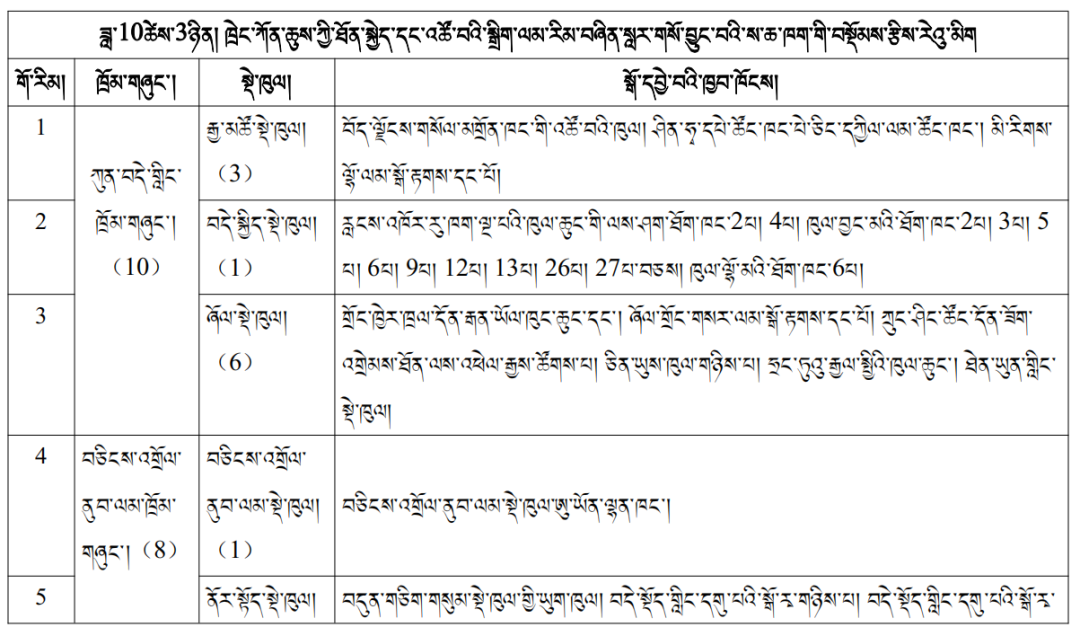 ཟླ་10ཚེས་3ཉིན། ཁྲེང་ཀོན་ཆུས་ཀྱི་ཐོན་སྐྱེད་དང་འཚོ་བའི་སྒྲིག་ལམ་རིམ་བཞིན་སླར་གསོ་བྱུང་བའི་ས་ཆ་ཁག་གི་བསྡོམས་རྩིས་རེའུ་མིག
གོ་རིམ། ཁྲོམ་གཞུང་། སྡེ་ཁུལ། སྒོ་དབྱེ་བའི་ཁྱབ་ཁོངས།
1
ཀུན་བདེ་གླིང་
ཁྲོམ་གཞུང་།
（10）
རྒྱ་མཚོ་སྡེ་ཁུལ།
（3）
བོད་ལྗོངས་གསོལ་མགྲོན་ཁང་གི་འཚོ་བའི་ཁུལ། ཤིན་ཧྭ་དཔེ་ཚོང་ཁང་པེ་ཅིང་དཀྱིལ་ལམ་ཚོང་ཁང་། མི་རིགས་
ལྷོ་ལམ་སྒོ་རྟགས་དང་པོ།
2
བདེ་སྐྱིད་སྡེ་ཁུལ།
（1）
རླངས་འཁོར་རུ་ཁག་ལྔ་པའི་ཁུལ་ཆུང་གི་ལས་ཤག་ཐོག་ཁང་2པ། 4པ། ཁུལ་བྱང་མའི་ཐོག་ཁང་2པ། 3པ། 5
པ། 6པ། 9པ། 12པ། 13པ། 26པ། 27པ་བཅས། ཁུལ་ལྷོ་མའི་ཐོག་ཁང་6པ།
3
ཞོལ་སྡེ་ཁུལ།
（6）
གྲོང་ཁྱེར་ཁྲལ་དོན་རྒན་ཡོལ་ཁུང་ཆུང་དང་། ཞོལ་གྲོང་གསར་ལམ་སྒོ་རྟགས་དང་པོ། ཀྲུང་ཤིང་ཚོང་དོན་ཟོག་
འགྲེམས་ཐོན་ལས་འཕེལ་རྒྱས་ཚོགས་པ། ཅིན་ཡུས་ཁུལ་གཉིས་པ། ཧྲང་ཏུའུ་རྒྱལ་སྤྱིའི་ཁུལ་ཆུང་། ཐེན་ཡུན་གླིང་
སྡེ་ཁུལ།
4
བཅིངས་འགྲོལ་
ནུབ་ལམ་ཁྲོམ་
གཞུང་།（8）
བཅིངས་འགྲོལ་
ནུབ་ལམ་སྡེ་ཁུལ།
（1）
བཅིངས་འགྲོལ་ནུབ་ལམ་སྡེ་ཁུལ་ཨུ་ཡོན་ལྷན་ཁང་།
5
ནོར་སྟོད་སྡེ་ཁུལ།
བདུན་གཅིག་གསུམ་སྡེ་ཁུལ་གྱི་ཡུག་ཁུལ། བདེ་སྟོད་གླིང་དགུ་པའི་སྒོ་ར་གཉིས་པ། བདེ་སྟོད་གླིང་དགུ་པའི་སྒོ་ར་